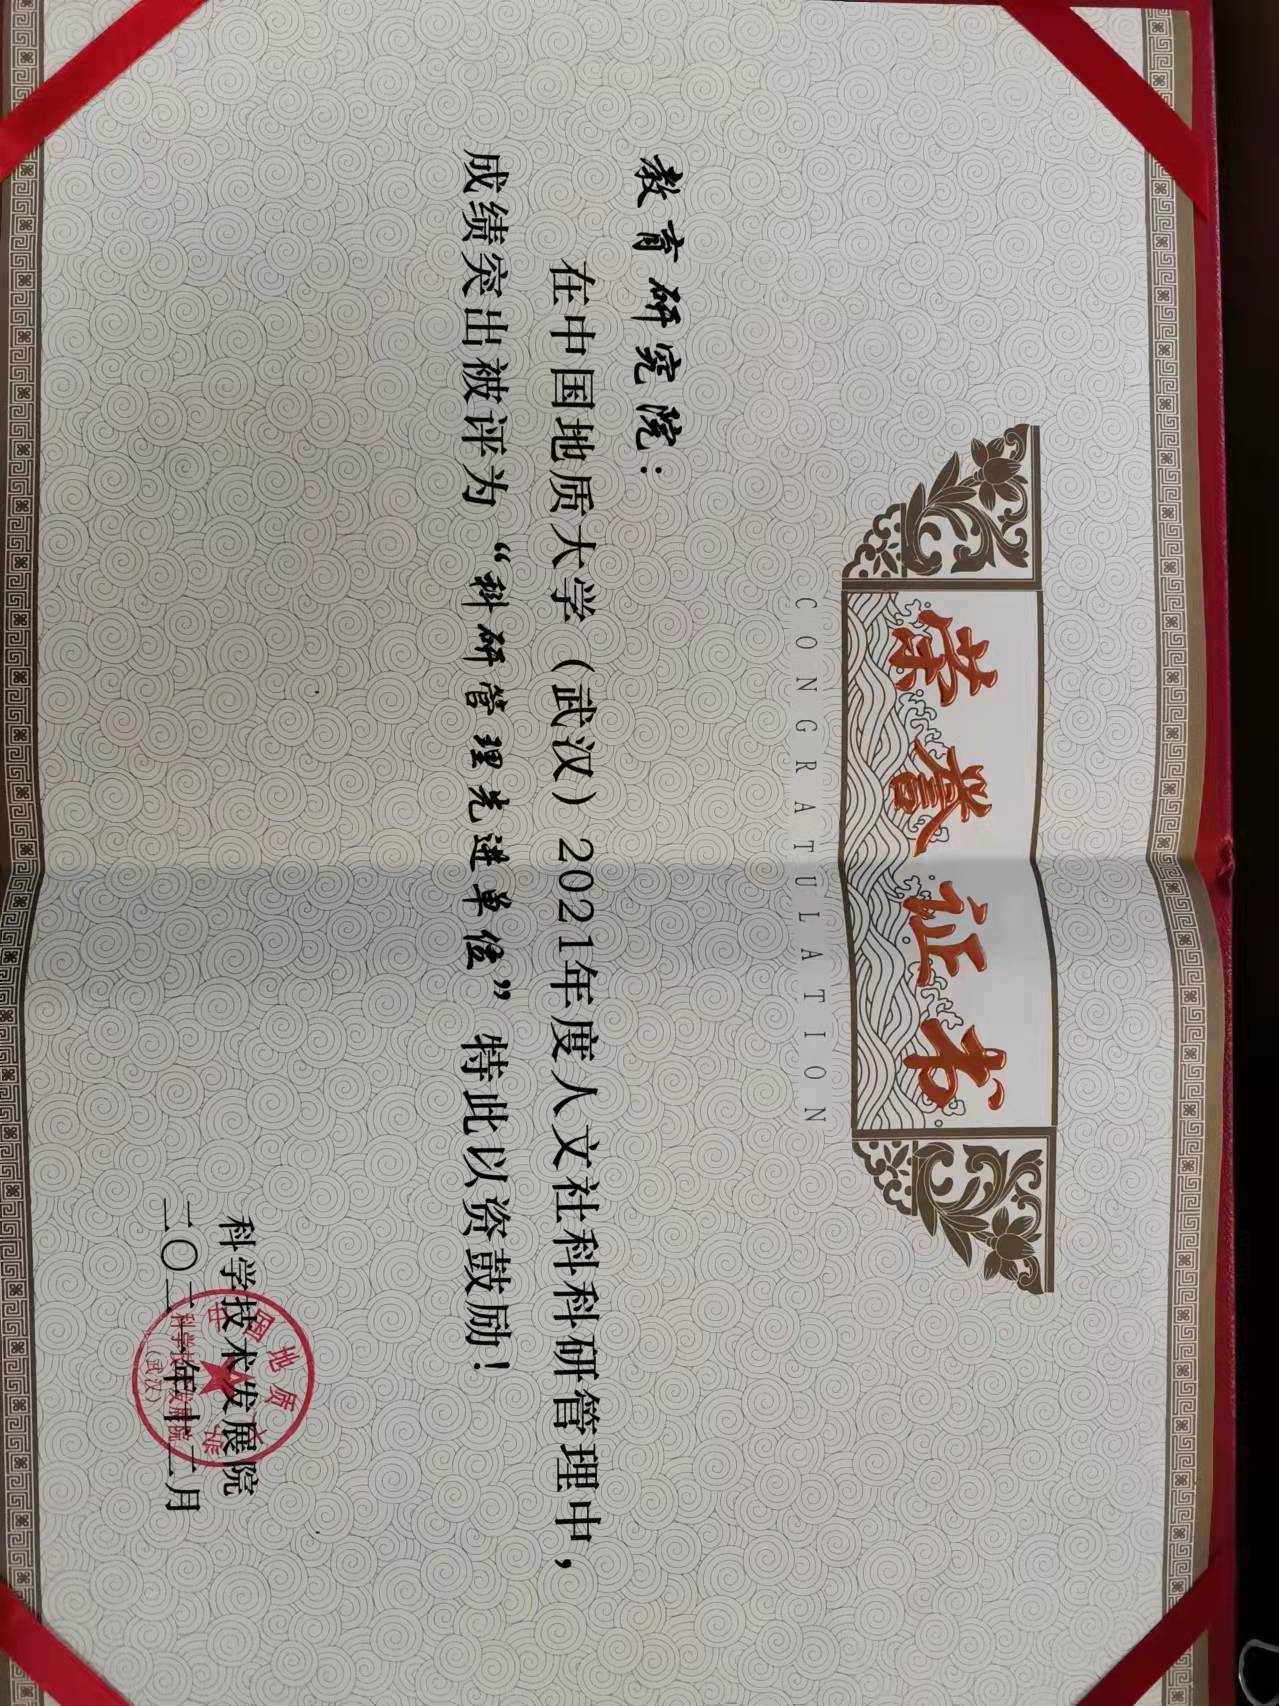 荣誉证书
CONGRATULATION
教育研究院：
在中国地质大学（武汉）2021年度人文社科科研管理中，
成绩突出被评为“科研管理先进单位”特此以资鼓励！
科学技术发展院
二〇二一年十二月
中国地质大学
科学技术发展院
（武汉）